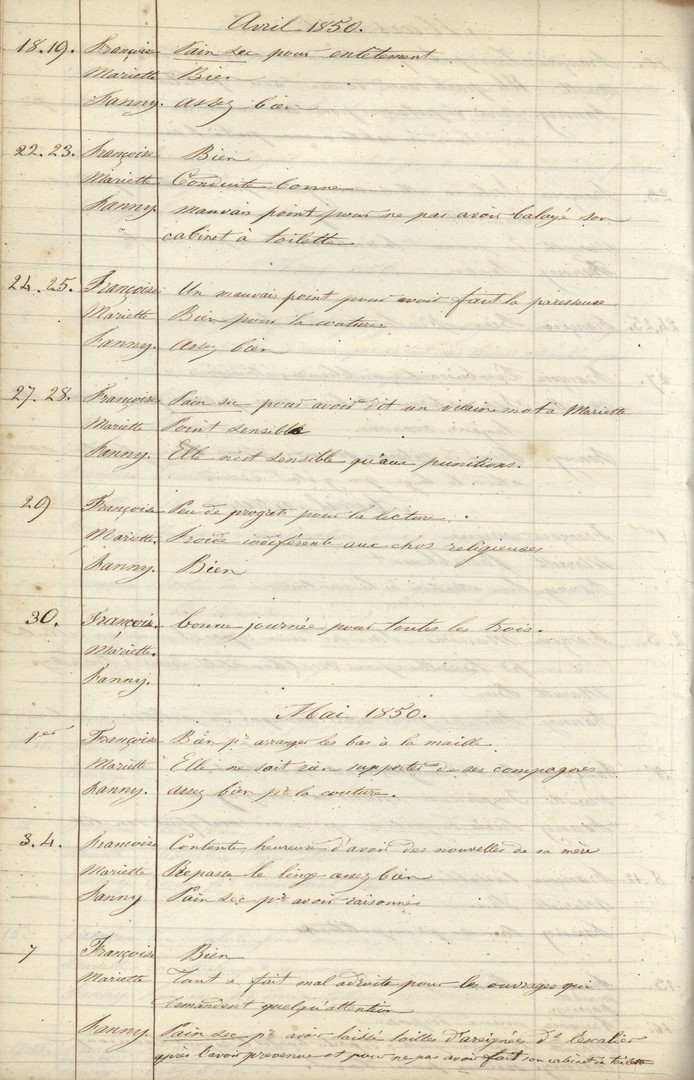 Avril 1850.
18.19. Françoise Pain sec pour entetement
Mariette Bien
Fanny. assez bien
22.23. Françoise Bien
Mariette Conduite bonne
Fanny. mauvais point pour ne pas avoir balayé son
cabinet à toilette.
24.25. Françoise Un mauvais point pour avoir fait la paresseuse
Mariette Bien pour la couture
Fanny. assez bien
27.28. Françoise Pain sec pour avoir dit un vilain mot à Mariette
Mariette Point sensible
Fanny. Elle n'est sensible qu'aux punitions.
29 Françoise Peu de progrès pour la lecture.
Mariette. Froide indiférente aux chos religieuses
Fanny. Bien
30. Françoise. bonne journée pour toutes les trois.
Mariette.
Fanny.
Mai 1850.
1er Françoise Bien pr arranger les bas à la maille
Mariette Elle ne sait rien supporter de ses compagnes
Fanny. assez bien pr la couture.
3.4. Francoise Contente, heureuse d'avoir des nouvelles de sa mère
Mariette Repasse le linge assez bien
Fanny Pain sec pr avoir raisonné
7 Françoise Bien
Mariette Tout a fait mal adroite pour les ouvrages qui
demandent quelqu'attention
Fanny. Pain sec pr avoir laissé toilles d'areignée ds l'escalier
après l'avoir prevenue et pour ne pas avoir fait son cabinet à toilette